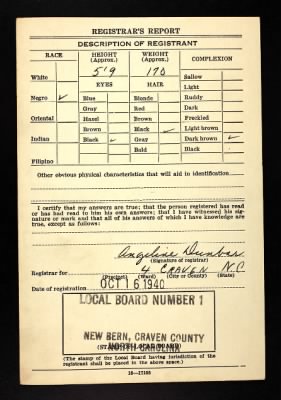 REGISTRAR'S REPORT
DESCRIPTION OF REGISTRANT
RACE HEIGHT (Approx.) WEIGHT (Approx.) COMPLEXION
5'9 170 Sallow
White
EYES HAIR Light
Negro ✓ Blue Blonde Ruddy
Gray Red Dark
Oriental Hazel Brown Freckled
Brown Black ✓ Light brown
Indian Black ✓ Gray Dark brown ✓
Bald Black
Filipino
Other obvious physical characteristics that will aid in identification
I certify that my answers are true; that the person registered has read
or has had read to him his own answers; that I have witnessed his sig-
nature or mark and that all of his answers of which I have knowledge are
true, except as follows:
Angeline Dunbar
(Signature of registrar)
Registrar for 4 CRAVEN N.C.
(Precinct) (Ward) (City or County) (State)
Date of registration OCT 16 1940
LOCAL BOARD NUMBER 1
NEW BERN, CRAVEN COUNTY
NORTH CAROLINA
(The stamp of the Local Board having jurisdiction of the
registrant shall be placed in the above space.)